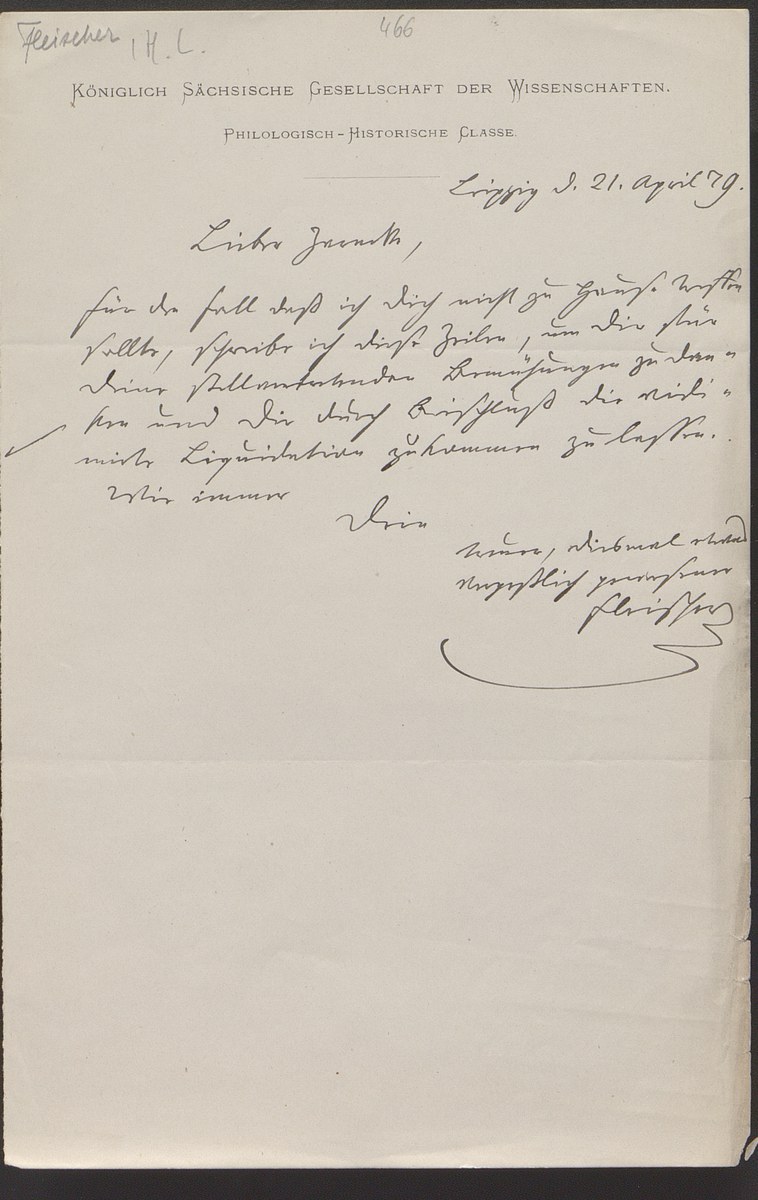 Fleischer, H. L.
466
Königlich Sächsische Gesellschaft der Wissenschaften.
Philologisch-Historische Classe.
Leipzig d. 21. April 79.
Lieber Zarncke,
Für den Fall daß ich Dich nicht zu Hause treffen
sollte, schreibe ich diese Zeilen, um Dir für
Deine stellvertretenden Bemühungen zu dan-
ken und Dir durch Beischluß die vidi-
mirte Liquidation zukommen zu lassen.
Wie immer
Dein
treuer, diesmal etwas
vergeßlich gewesener
Fleischer